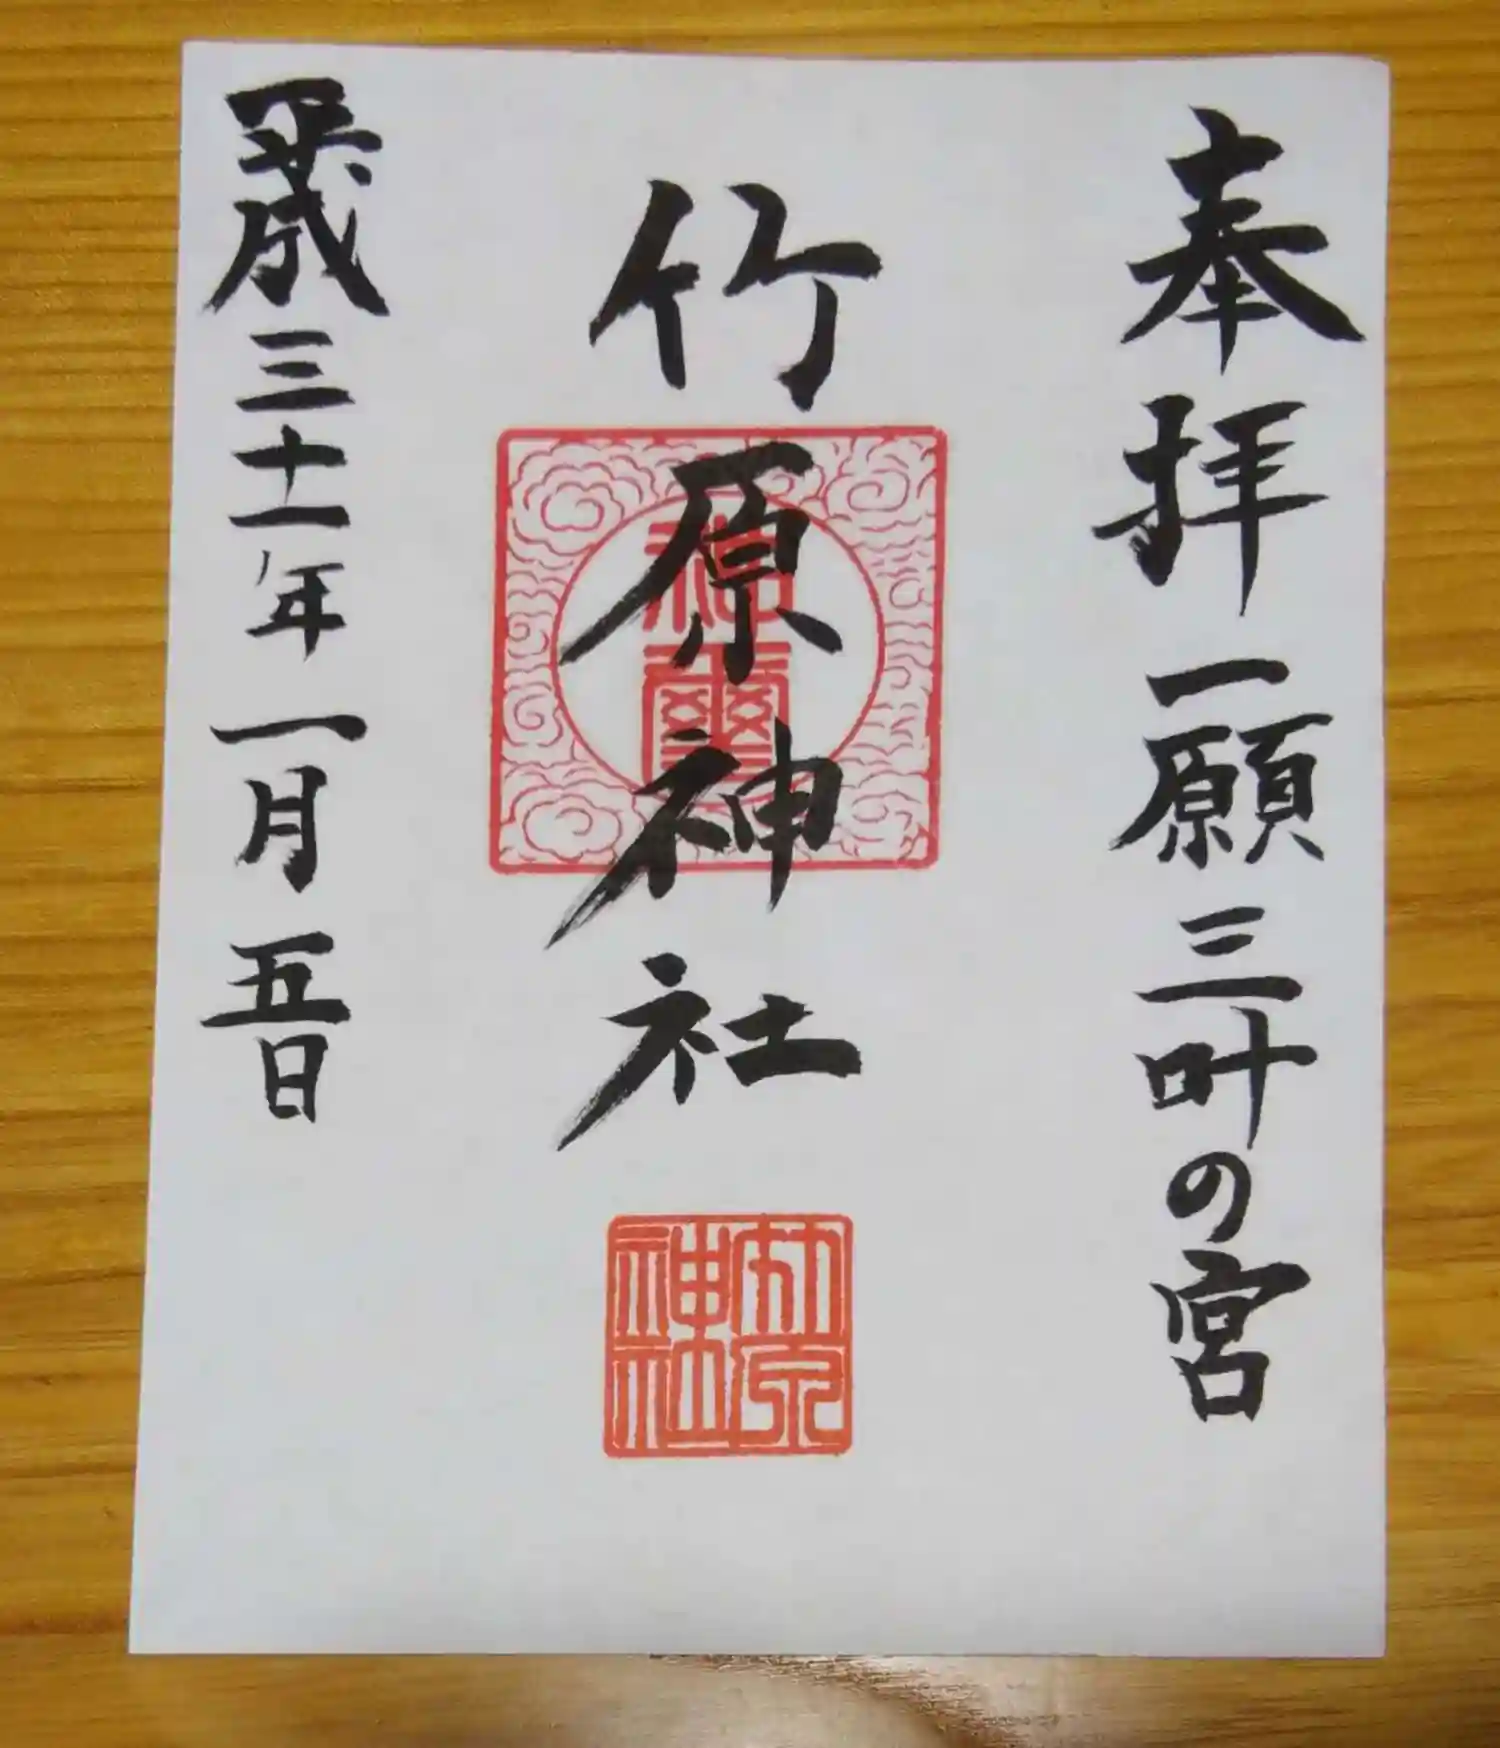 奉拝 一願三叶の宮
竹原神社
神璽
竹原神社
平成三十一年一月五日